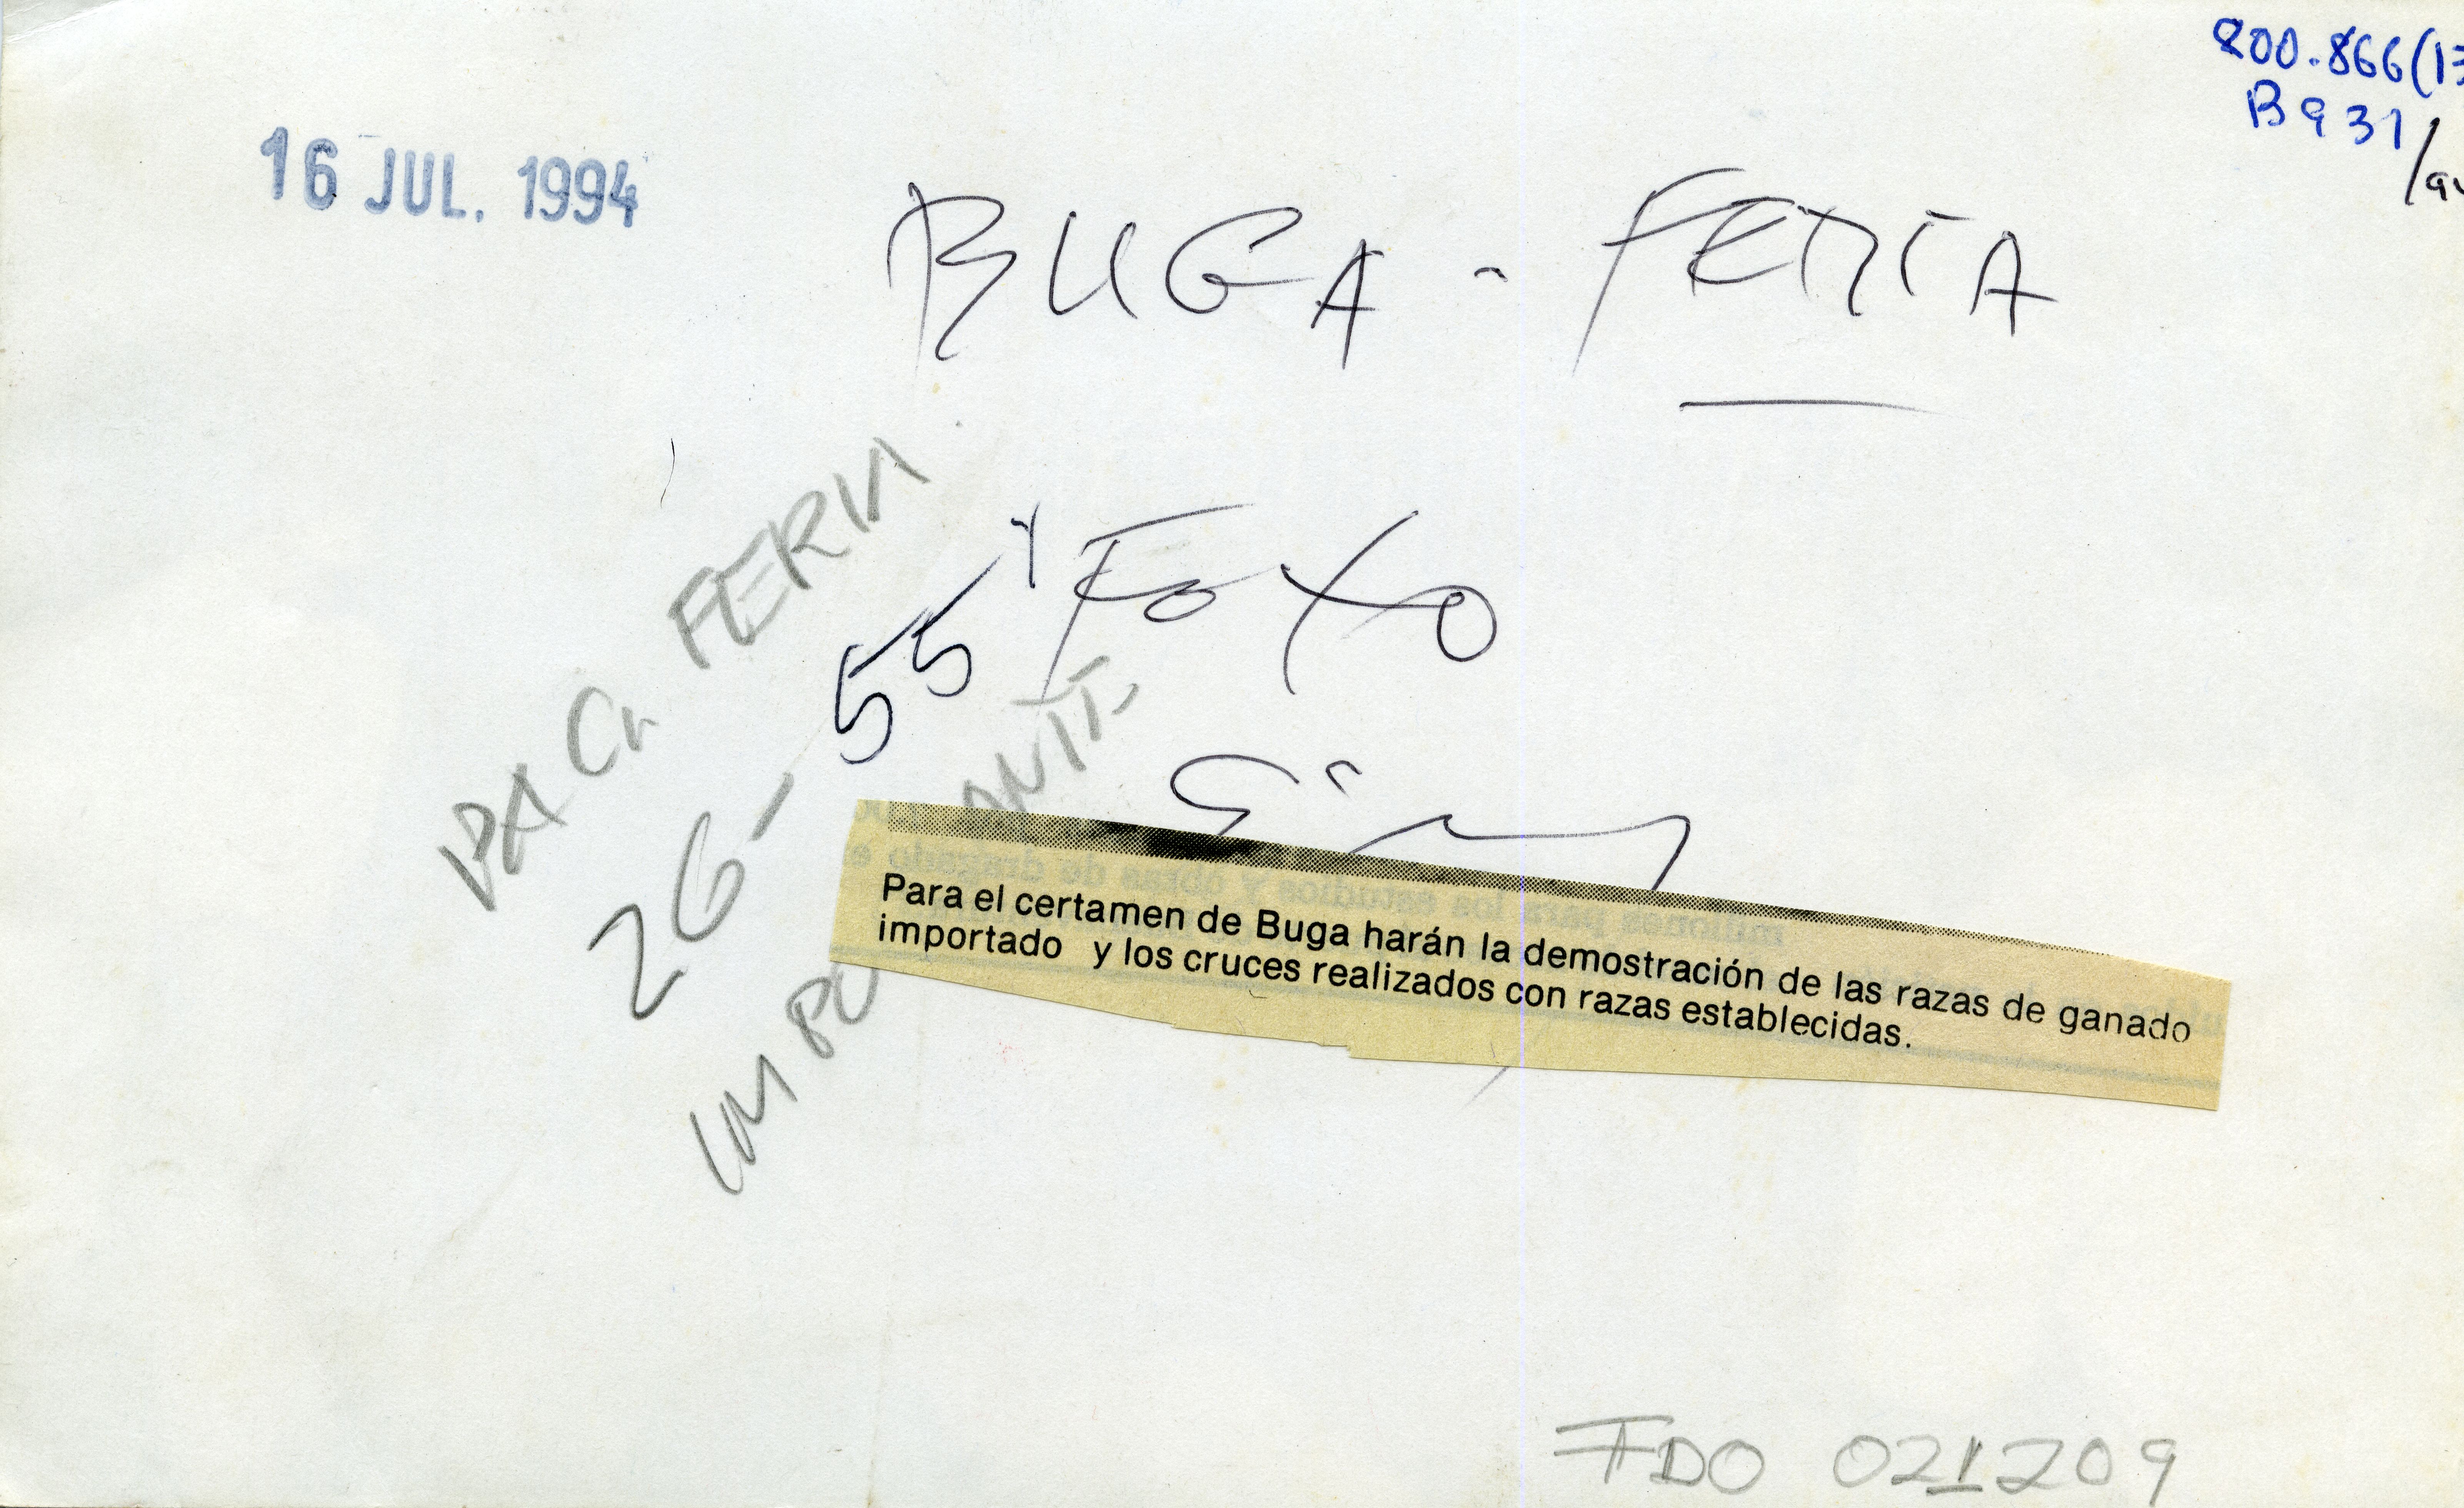 800.866(13
B931
16 JUL. 1994
BUGA - FERIA
FERIA
55
Foto
26-
Para el certamen de Buga harán la demostración de las razas de ganado
importado y los cruces realizados con razas establecidas.
FDO 021209